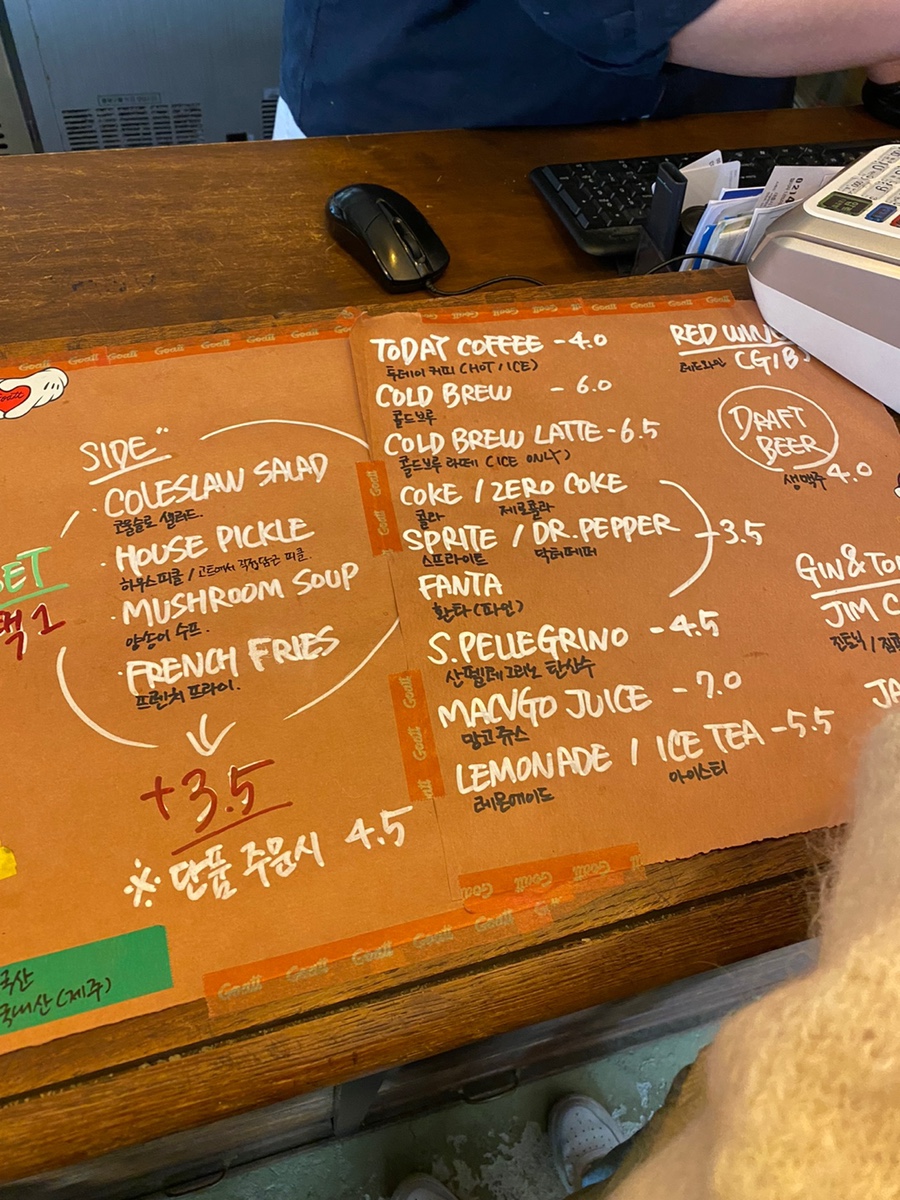 SIDE"
· COLESLAW SALAD
코울슬로 샐러드.
· HOUSE PICKLE
하우스피클 / 고트에서 직접담근 피클.
· MUSHROOM SOUP
양송이 수프.
· FRENCH FRIES
프렌치 프라이.
+3.5
※ 단품 주문시 4.5
ET
택1
국산
국내산(제주)
TODAY COFFEE - 4.0
투데이 커피 (HOT / ICE)
COLD BREW - 6.0
콜드브루
COLD BREW LATTE - 6.5
콜드브루 라떼 (ICE ONLY)
COKE / ZERO COKE
콜라 제로콜라
SPRITE / DR.PEPPER - 3.5
스프라이트 닥터페퍼
FANTA
환타 (파인)
S.PELLEGRINO - 4.5
산펠레그리노 탄산수
MANGO JUICE - 7.0
망고쥬스
LEMONADE / ICE TEA - 5.5
레몬에이드 아이스티
RED WIN
레드와인 CG/B
DRAFT
BEER
생맥주 4.0
GIN & TO
JIM C
진토닉 / 짐
JA
Goatt
0214